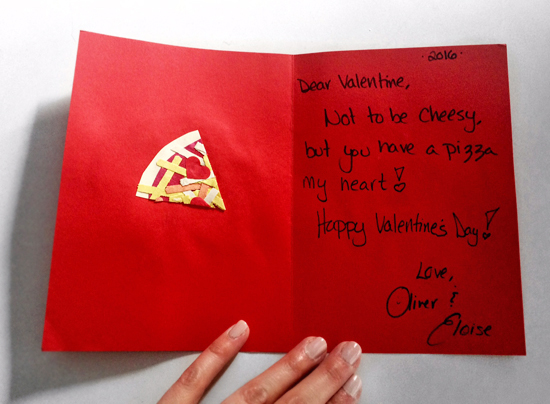 ·2016·
Dear Valentine,
Not to be cheesy,
but you have a pizza
my heart!
Happy Valentine's Day!
Love,
Oliver &
Eloise